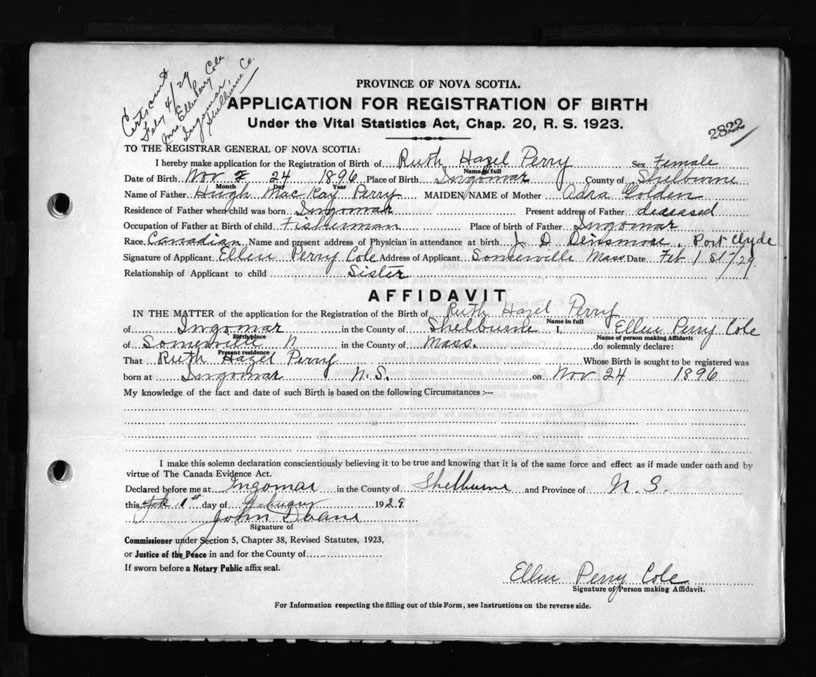 Cert sent
Feby 4/29
Mrs Ellen Perry Cole
Ingomar,
Shelburne Co.
PROVINCE OF NOVA SCOTIA.
APPLICATION FOR REGISTRATION OF BIRTH
Under the Vital Statistics Act, Chap. 20, R. S. 1923.
2822
TO THE REGISTRAR GENERAL OF NOVA SCOTIA:
I hereby make application for the Registration of Birth of Ruth Hazel Perry Sex Female
Name in full
Date of Birth Nov 24 1896 Place of Birth Ingomar County of Shelburne
Month Day Year
Name of Father Hugh MacKay Perry MAIDEN NAME of Mother Adra Golden
Residence of Father when child was born Ingomar Present address of Father deceased
Occupation of Father at Birth of child Fisherman Place of birth of Father Ingomar
Race Canadian Name and present address of Physician in attendance at birth J. D Densmore, Port Clyde
Signature of Applicant Ellen Perry Cole Address of Applicant Somerville Mass Date Feb 1 St/29
Relationship of Applicant to child Sister
AFFIDAVIT
IN THE MATTER of the application for the Registration of the Birth of Ruth Hazel Perry
Name in full
of Ingomar in the County of Shelburne I, Ellen Perry Cole
Birthplace Name of person making Affidavit
of Somerville N in the County of Mass. do solemnly declare:
Present residence
That Ruth Hazel Perry Whose Birth is sought to be registered was
born at Ingomar N.S. on Nov 24 1896
My knowledge of the fact and date of such Birth is based on the following Circumstances :—
I make this solemn declaration conscientiously believing it to be true and knowing that it is of the same force and effect as if made under oath and by
virtue of The Canada Evidence Act.
Declared before me at Ingomar in the County of Shelburne and Province of N. S.
this 1st day of February 1929
John Doane
Signature of
Commissioner under Section 5, Chapter 38, Revised Statutes, 1923,
or Justice of the Peace in and for the County of
If sworn before a Notary Public affix seal.
Ellen Perry Cole
Signature of Person making Affidavit.
For Information respecting the filling out of this Form, see Instructions on the reverse side.